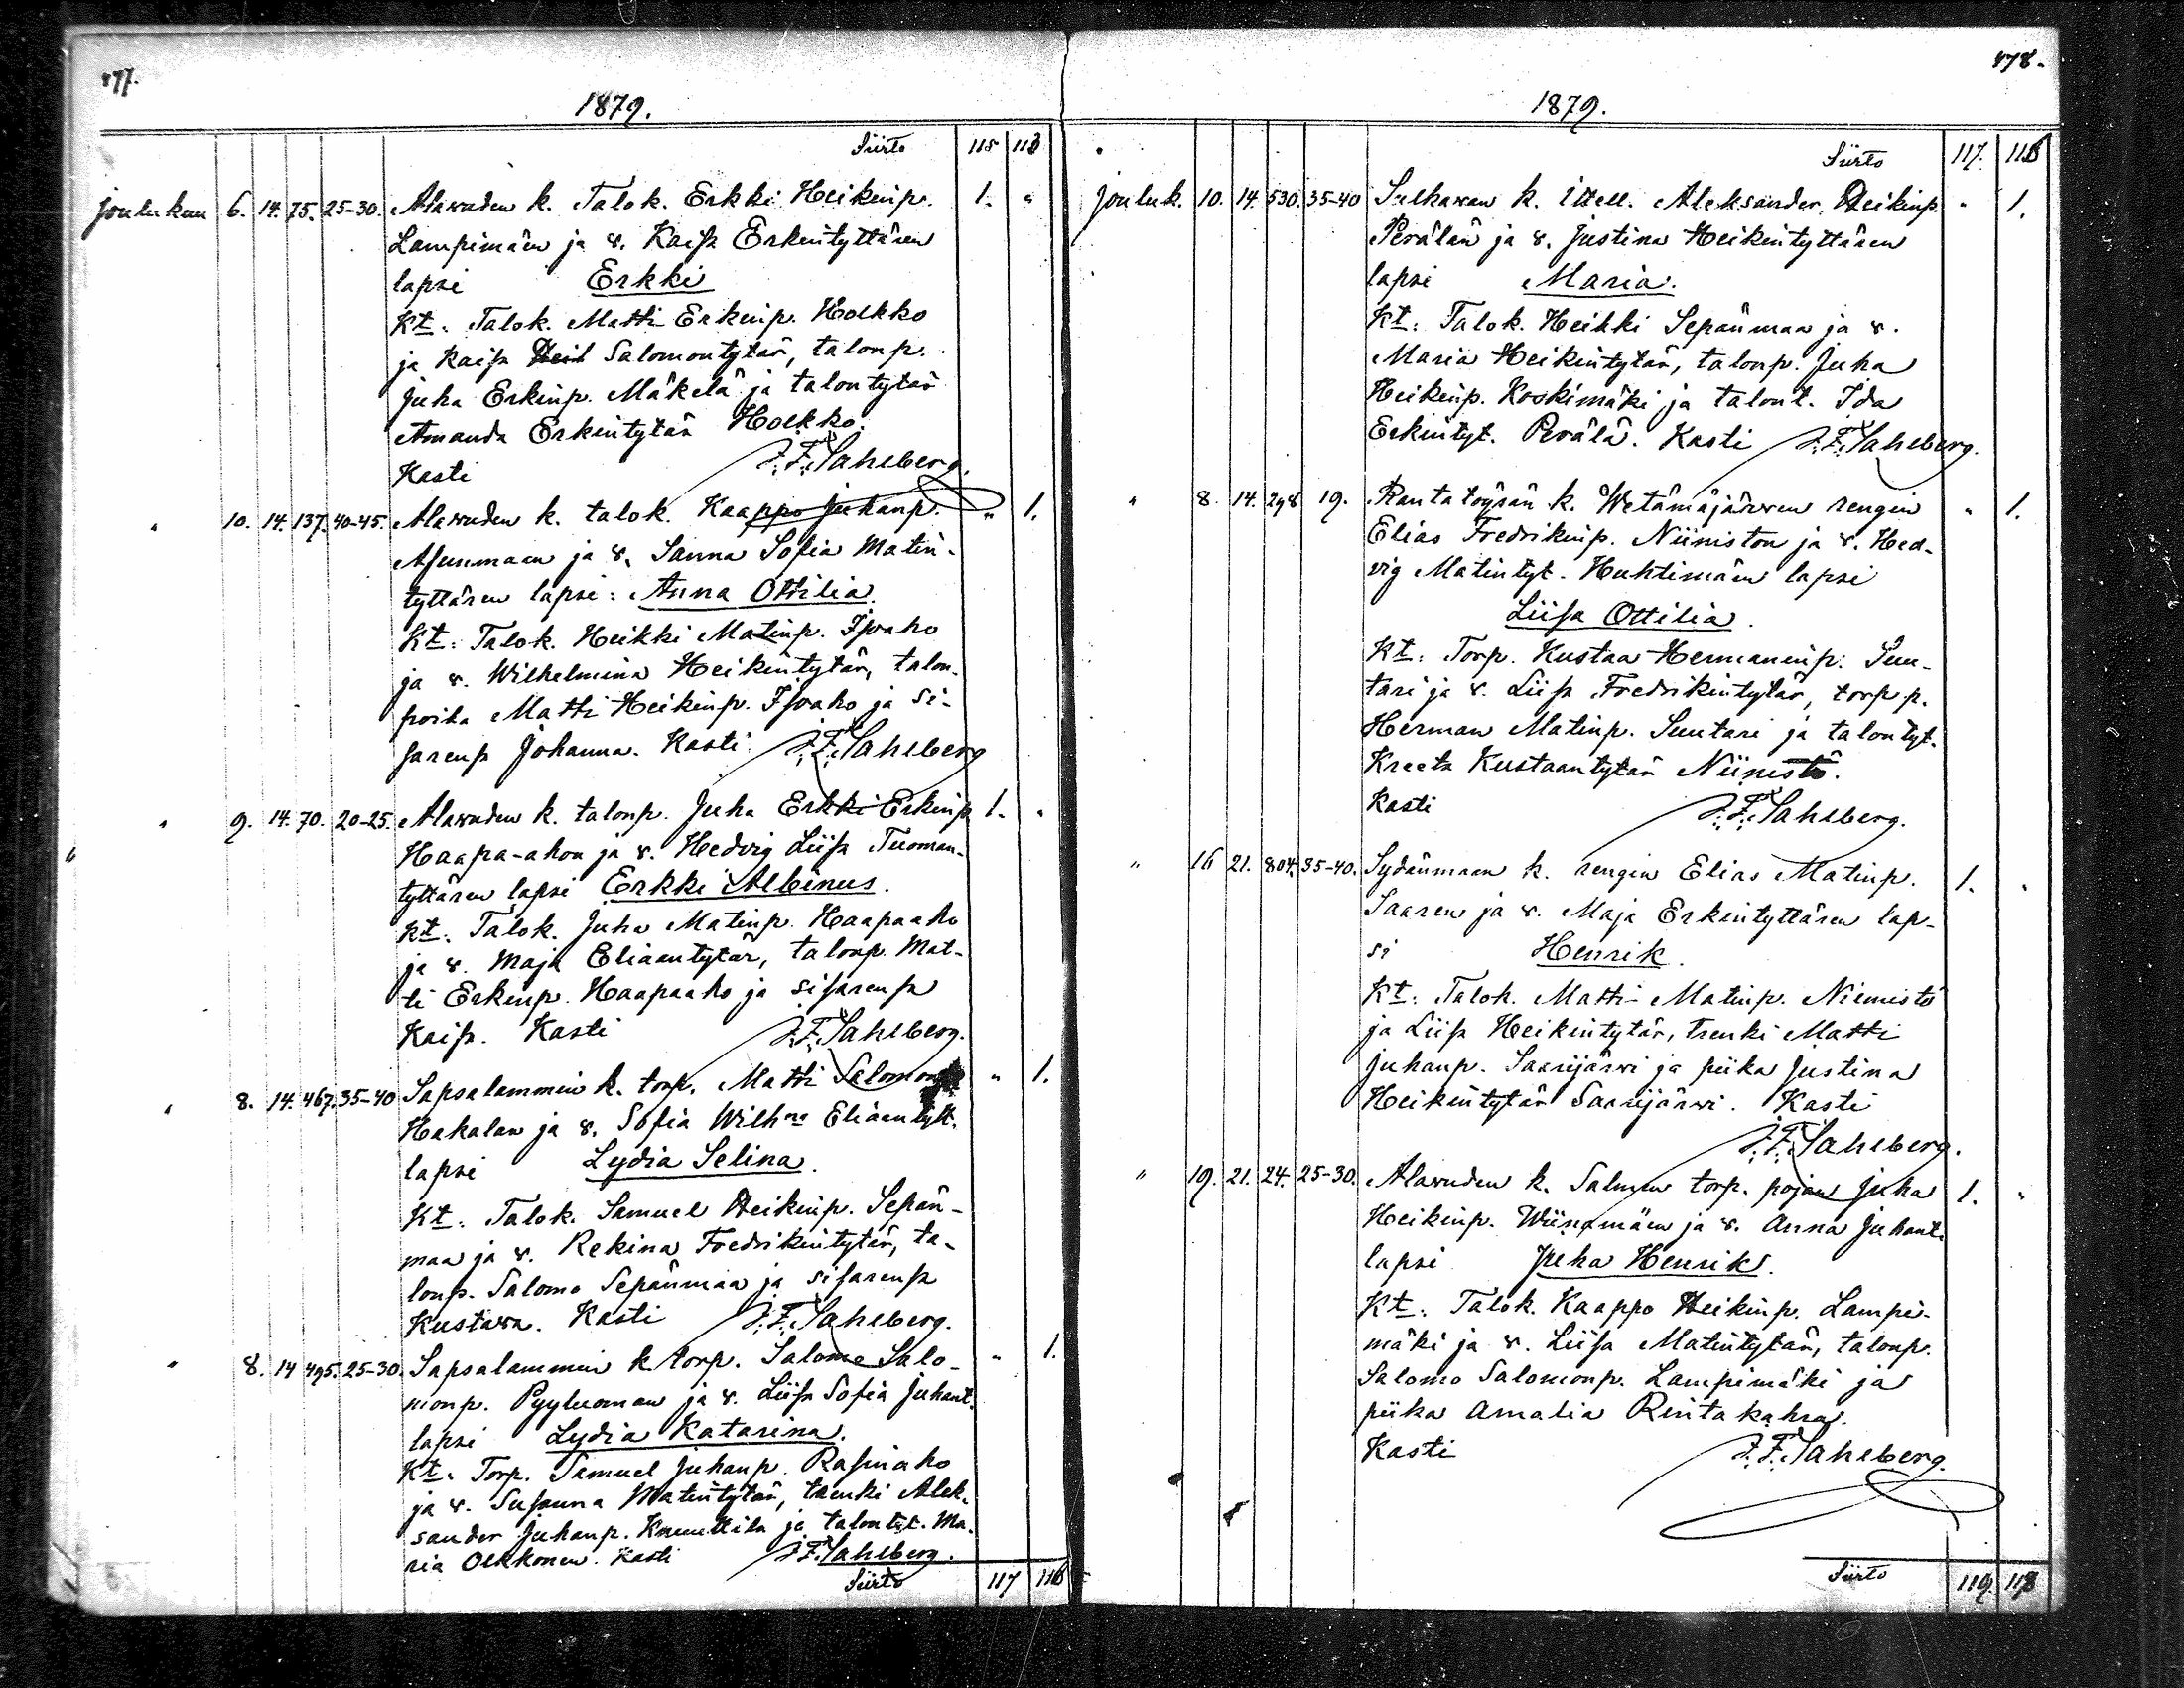 477.
1879.
Siirto 115 113
joulukuu 6. 14. 75. 25-30. Alavuden k. Talok. Erkki Heikinp. 1. "
Lampimäen ja v. Kaisa Erkintyttären
lapsi Erkki
Kt. Talok. Matti Erkinp. Holkko
ja Kaisa Salomontytär, talonp.
Juha Erkinp. Mäkelä ja talontytär
Amanda Erkintytär Holkko.
Kasti J. F. Sahlberg.
" 10. 14. 137. 40-45. Alavuden k. talok. Kaappo Juhanp. " 1.
Asunmaan ja v. Sanna Sofia Matin-
tyttären lapsi: Anna Ottilia.
Kt: Talok. Heikki Matinp. Isoaho
ja v. Wilhelmina Heikintytär, talon-
poika Matti Heikinp. Isoaho ja si-
sarensa Johanna. Kasti J. F. Sahlberg
" 9. 14. 70. 20-25. Alavuden k. talonp. Juha Erkki Erkinp. 1. "
Haapa-ahon ja v. Hedvig Liisa Tuoman-
tyttären lapsi Erkki Albinus.
Kt. Talok. Juha Matinp. Haapaaho
ja v. Maja Eliaantytär, talonp. Mat-
ti Erkinp. Haapaaho ja sisarensa
Kaisa. Kasti J. F. Sahlberg.
" 8. 14. 467. 35-40 Sapsalammin k. torp. Matti Salomonp. " 1.
Hakalan ja v. Sofia Wilhna Eliaantytt.
lapsi Lydia Selina.
Kt. Talok. Samuel Heikinp. Sepän-
maa ja v. Rekina Fredrikintytär, ta-
lonp. Salomo Sepänmaa ja sisarensa
Kustava. Kasti J. F. Sahlberg.
" 8. 14 495. 25-30. Sapsalammin k. torp. Salomo Salo- " 1.
monp. Pyyluoman ja v. Liisa Sofia Juhant.
lapsi Lydia Katarina.
Kt. Torp. Samuel Juhanp. Rasinaho
ja v. Susanna Matintytär, trenki Alek-
sander Juhanp. Knuuttila ja talontyt. Ma-
ria Olkkonen. Kasti J. F. Sahlberg.
Siirto 117 116
478.
1879.
Siirto 117. 116
jouluk. 10. 14. 530. 35-40 Sulkavan k. itsell. Aleksander Heikinp. " 1.
Perälän ja v. Justina Heikintyttären
lapsi Maria.
Kt. Talok. Heikki Sepänmaa ja v.
Maria Heikintytär, talonp. Juha
Heikinp. Koskimäki ja talont. Ida
Erkintyt. Perälä. Kasti J. F. Sahlberg.
" 8. 14. 298 19. Rantatöysän k. Wetämäjärven rengin " 1.
Elias Fredrikinp. Niiniston ja v. Hed-
vig Matintyt. Huhtimäen lapsi
Liisa Ottilia.
Kt. Torp. Kustaa Hermaninp. Suu-
tari ja v. Liisa Fredrikintytär, torp.p.
Herman Matinp. Suutari ja talontyt.
Kreeta Kustaantytär Niinistö.
Kasti J. F. Sahlberg.
" 16 21. 804. 35-40. Sydänmaan k. rengin Elias Matinp. 1. "
Saaren ja v. Maja Erkintyttären lap-
si Henrik.
Kt: Talok. Matti Matinp. Niemistö
ja Liisa Heikintytär, trenki Matti
Juhanp. Saarijärvi ja piika Justina
Heikintytär Saarijärvi. Kasti
J. F. Sahlberg.
" 19. 21. 24. 25-30. Alavuden k. Salmen torp. pojan Juha 1. "
Heikinp. Wiinamäen ja v. Anna Juhant.
lapsi Juha Henrik.
Kt. Talok. Kaappo Heikinp. Lampi-
mäki ja v. Liisa Matintytär, talonp.
Salomo Salomonp. Lampimäki ja
piika Amalia Rintakahra.
Kasti J. F. Sahlberg.
Siirto 119. 118